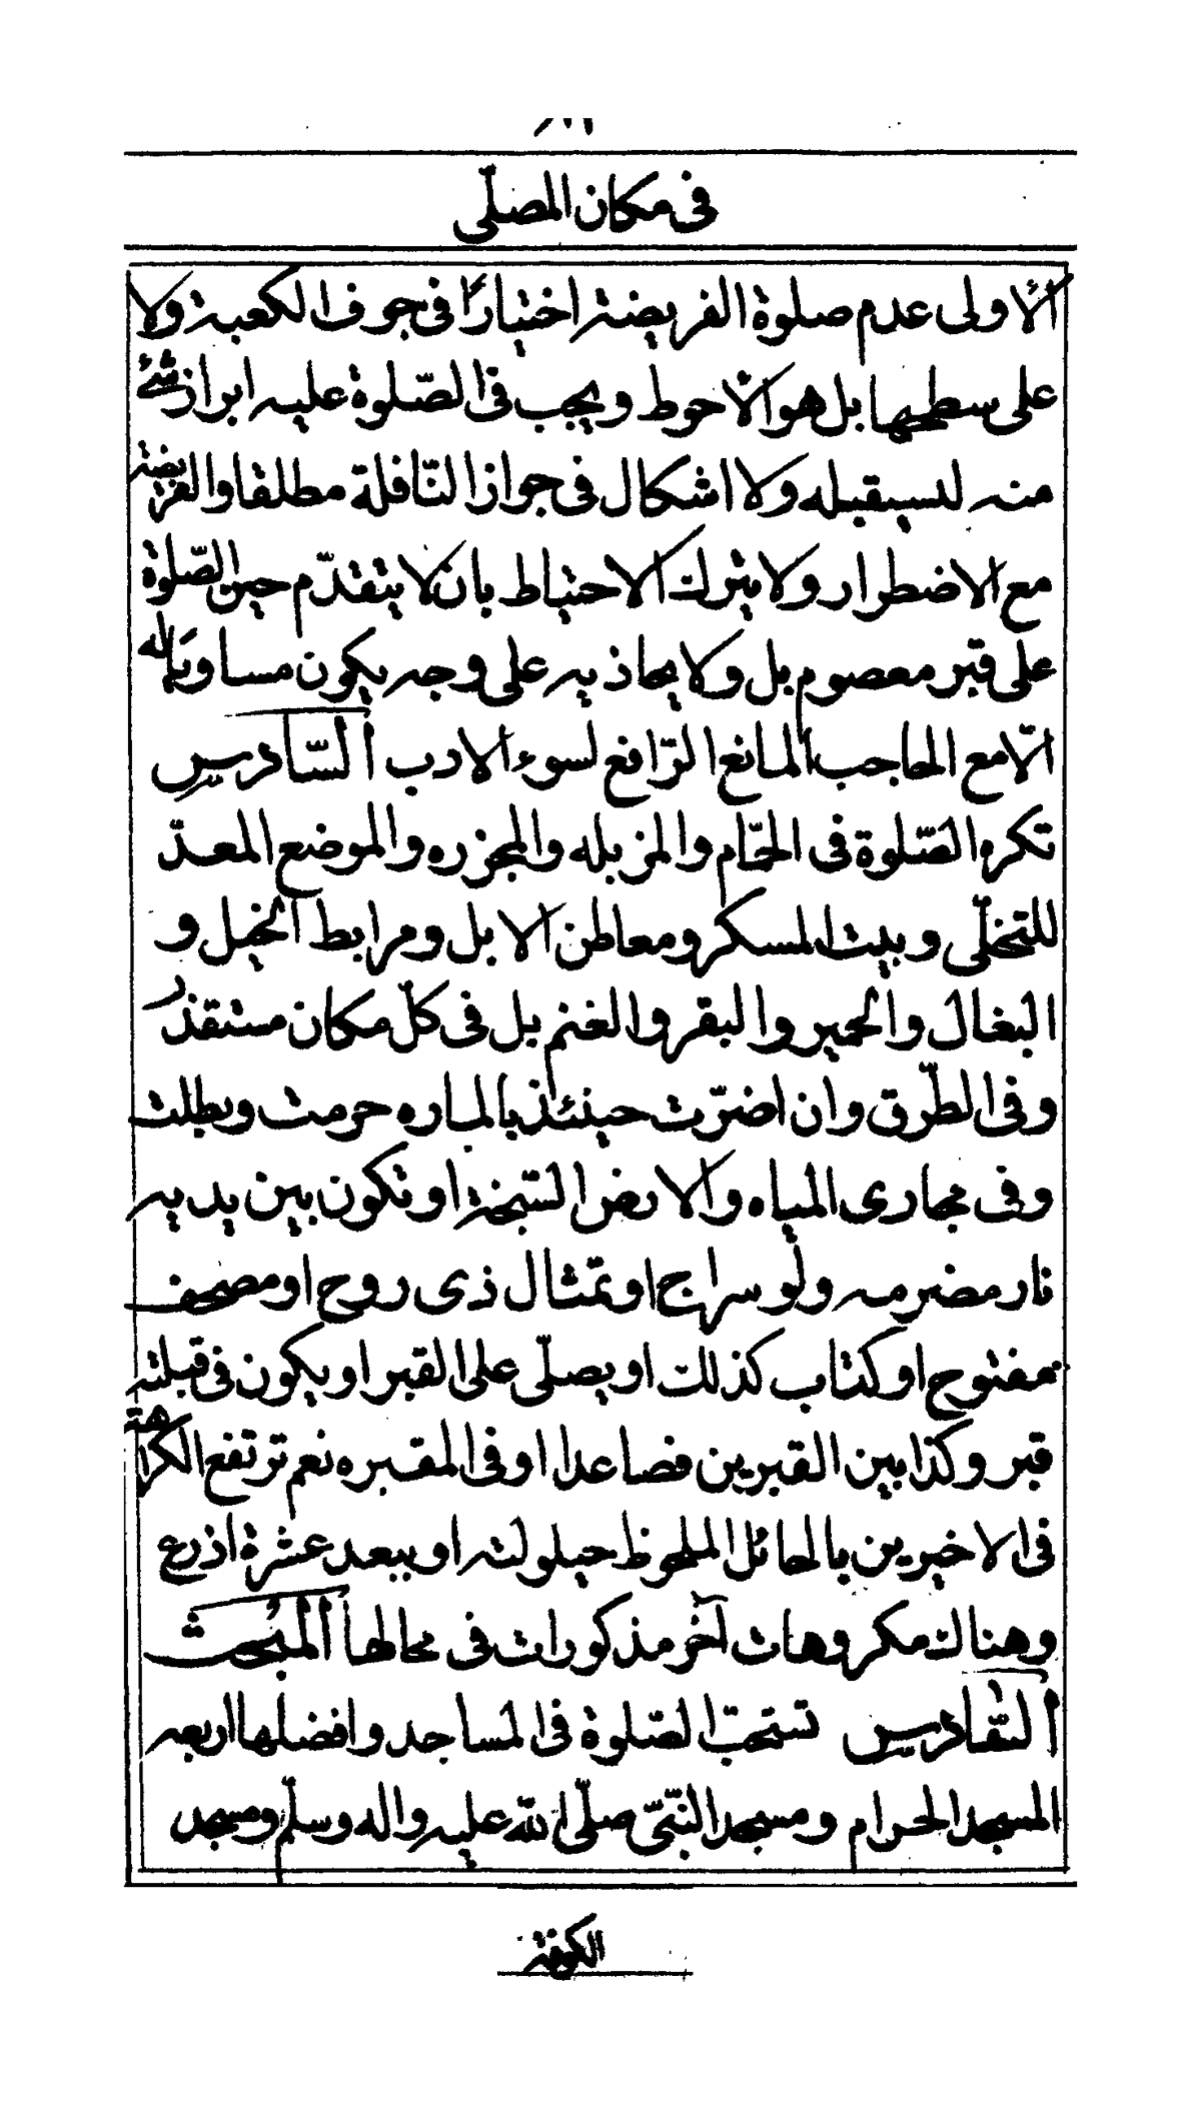 في مكان المصلّى
الأولى عدم صلوة الفريضة اختيارًا في جوف الكعبة ولا
على سطحها بل هو الأحوط ويجب في الصّلوة عليه ابراز شئ
منه ليستقبله ولا اشكال في جواز النّافلة مطلقا والفريضة
مع الاضطرار ولا يترك الاحتياط بان لا يتقدّم حين الصّلوة
على قبر معصوم بل ولا يحاذيه على وجه يكون مساويا له
الّا مع الحاجب المانع الرّافع لسوء الادب السّادس
تكره الصّلوة في الحمّام والمزبله والمجزره والموضع المعدّ
للتخلّى وبيت المسكر ومعاطن الابل ومرابط الخيل و
البغال والحمير والبقر والغنم بل في كلّ مكان مستقذر
وفي الطّرق وان اضرّت حينئذ بالماره حرمت وبطلت
وفي مجاري المياه والارض السّبخة او تكون بين يديه
نار مضرمه ولو سراج او تمثال ذي روح او مصحف
مفتوح او كتاب كذلك او يصلّى على القبر او يكون في قبلته
قبر وكذا بين القبرين فصاعدا او في المقبره نعم ترتفع الكراهة
في الاخيرين بالحائل الملحوظ حيلولته او ببعد عشرة اذرع
وهناك مكروهات آخر مذكورات في محالها المبحث
السّادس تستحبّ الصّلوة في المساجد وافضلها اربعه
المسجد الحرام ومسجد النّبيّ صلّى الله عليه واله وسلّم ومسجد
الكوفة